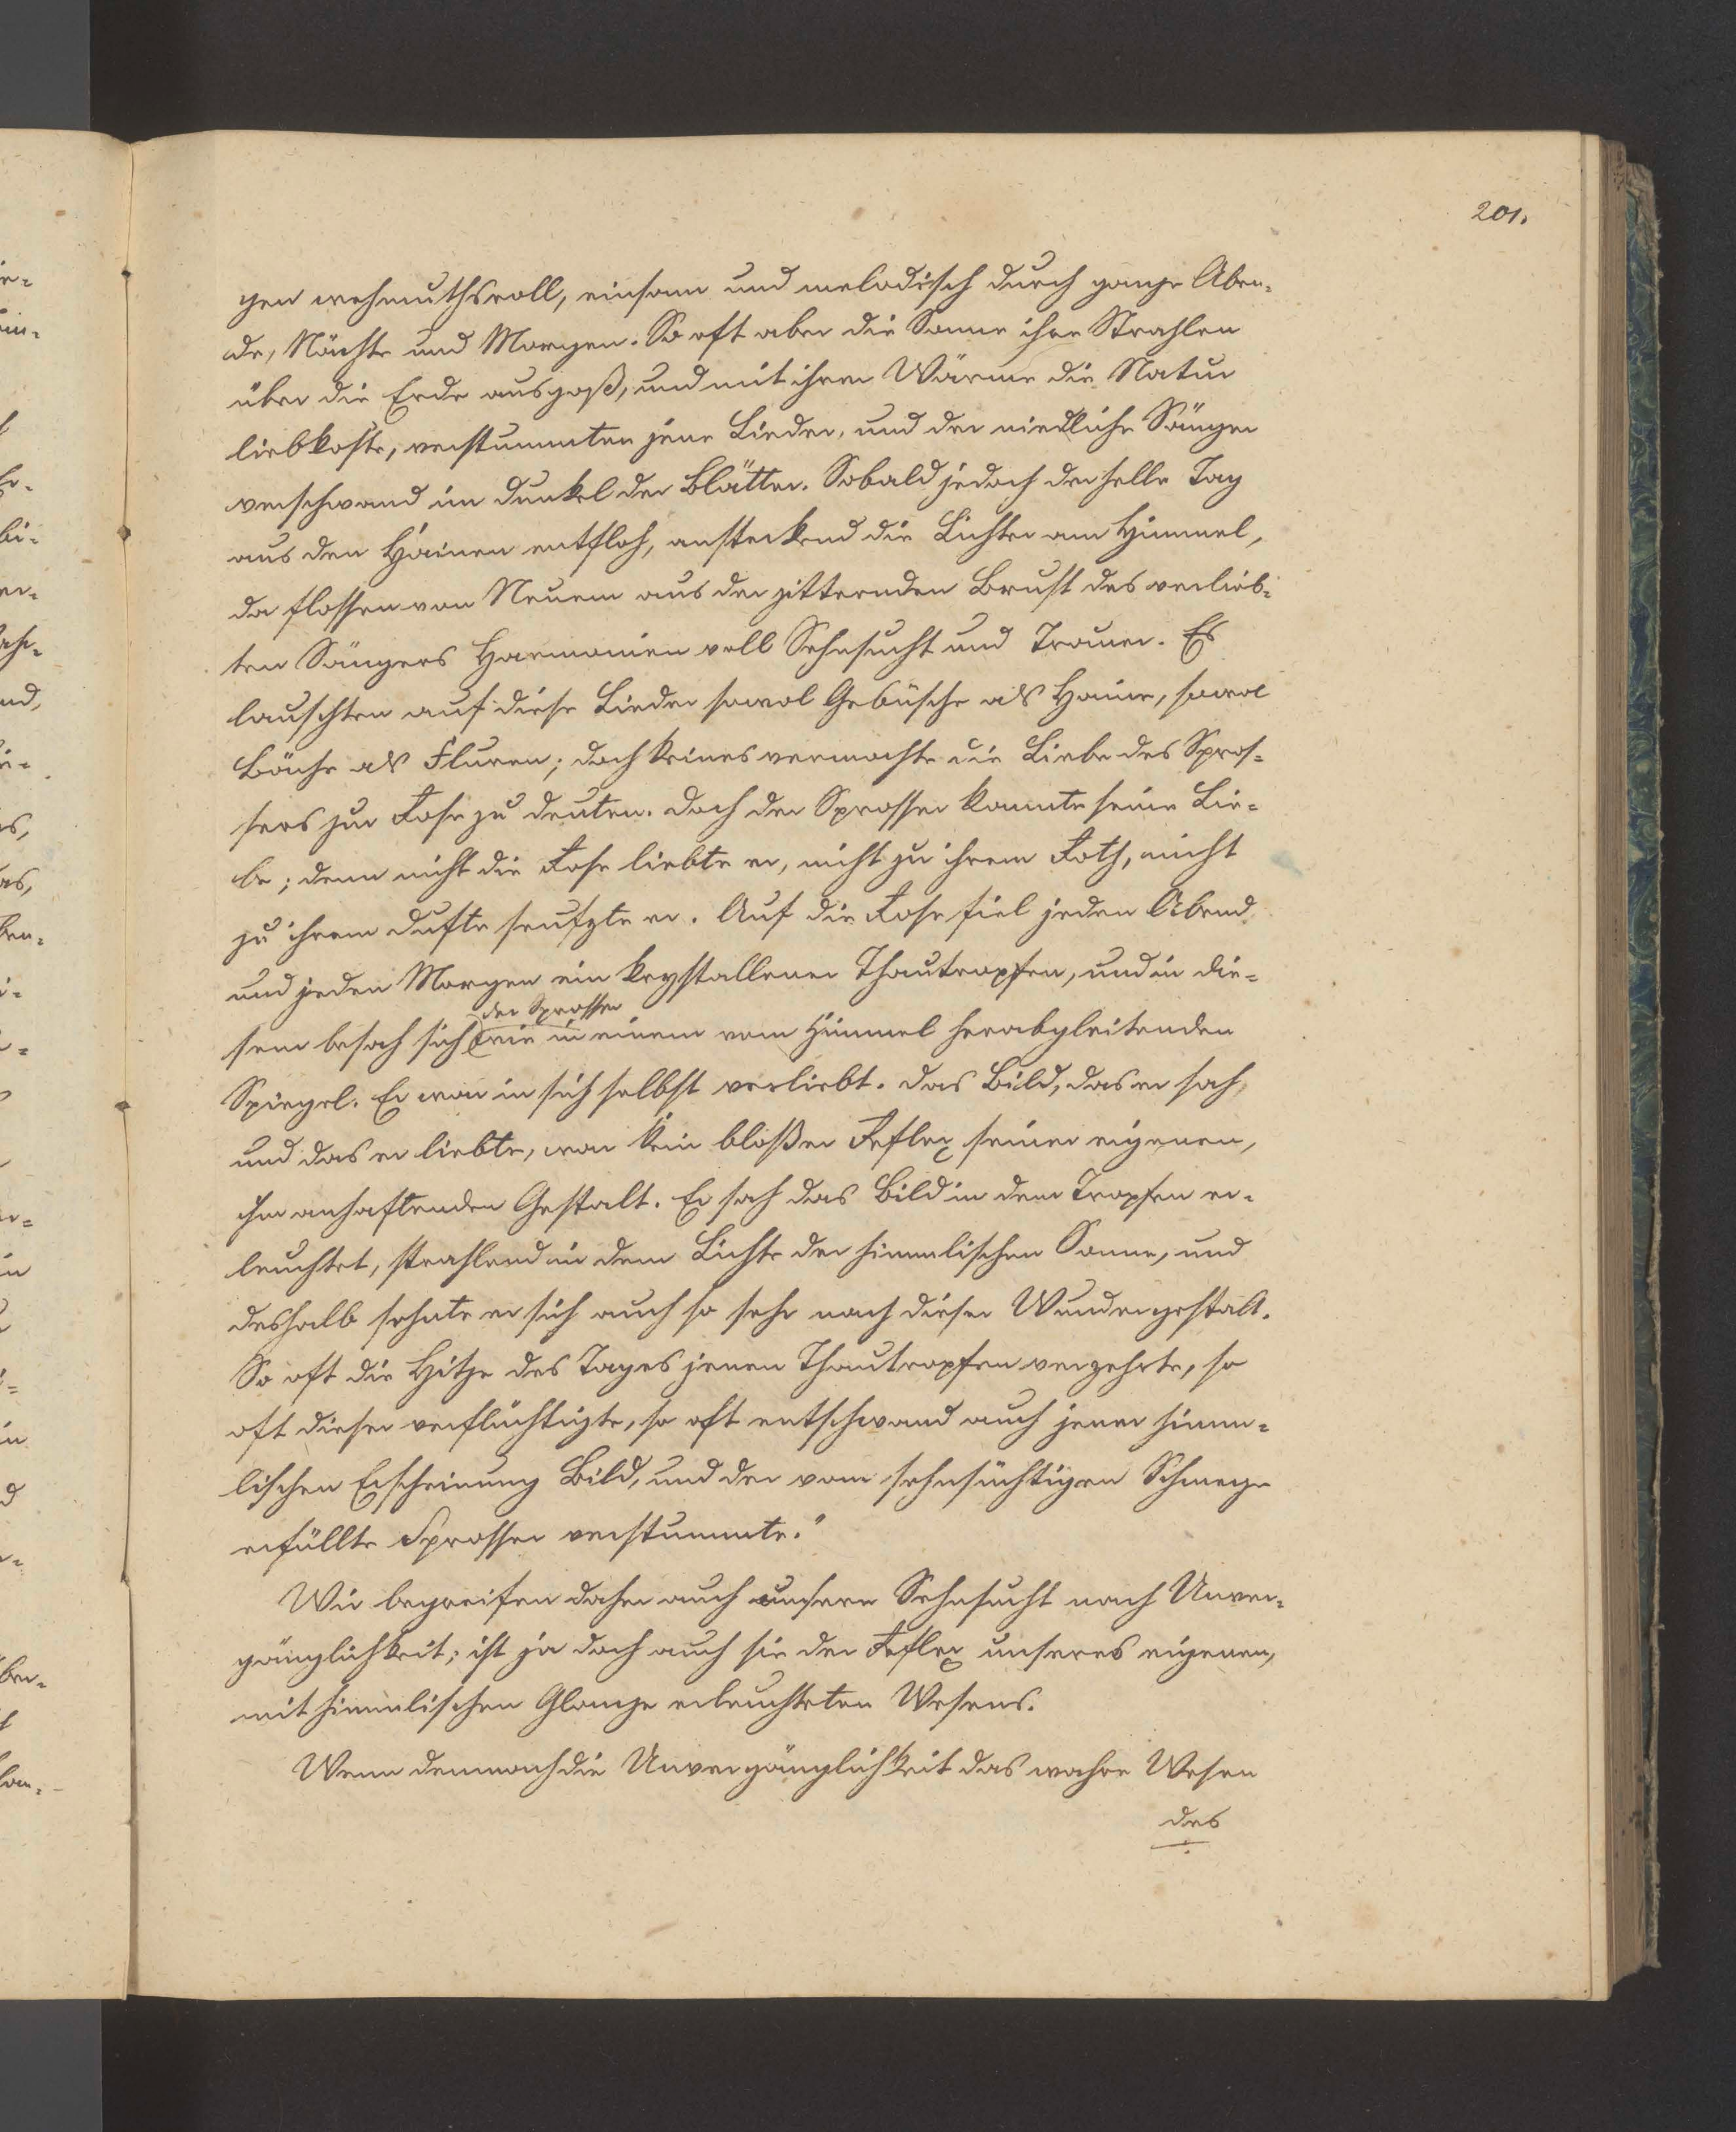 201.
gen wehmuthsvoll, einsam und melodisch durch ganze Aben-
de, Nächte und Morgen. So oft aber die Sonne ihre Strahlen
über die Erde ausgoß, und mit ihrer Wärme die Natur
liebkoste, verstummten jene Lieder, und der niedliche Sänger
verschwand im Dunkel der Blätter. Sobald jedoch der helle Tag
aus den Hainen entfloh, ansteckend die Lichter am Himmel,
da flossen von Neuem aus der zitternden Brust des verlieb-
ten Sängers Harmonien voll Sehnsucht und Trauer. Es
lauschten auf diese Lieder sowol Gebüsche als Haine, sowol
Bäche als Fluren; doch keines vermochte die Liebe des Spros-
sers zur Rose zu deuten. Doch der Sprosser kannte seine Lie-
be; denn nicht die Rose liebte er, nicht zu ihrem Roth, nicht
zu ihrem Dufte seufzte er. Auf die Rose fiel jeden Abend
und jeden Morgen ein krystallener Thautropfen, und in die-
der Sprosser
sem besah sich wie in einem vom Himmel herabgleitenden
Spiegel. Er war in sich selbst verliebt. Das Bild, das er sah,
und das er liebte, war kein bloßer Reflex seiner eigenen,
ihm anhaftenden Gestalt. Er sah das Bild in dem Tropfen er-
leuchtet, strahlend in dem Lichte der himmlischen Sonne, und
deshalb sehnte er sich auch so sehr nach dieser Wundergestalt.
So oft die Hitze des Tages jenen Thautropfen verzehrte, so
oft dieser verflüchtigte, so oft entschwand auch jener himm-
lischen Erscheinung Bild, und der vom sehnsüchtigen Schmerze
erfüllte Sprosser verstummte."
Wir begreifen daher auch unsere Sehnsucht nach Unver-
gänglichkeit; ist ja doch auch sie der Reflex unseres eigenen,
mit himmlischen Glanze erleuchteten Wesens.
Wenn demnach die Unvergänglichkeit das wahre Wesen
des